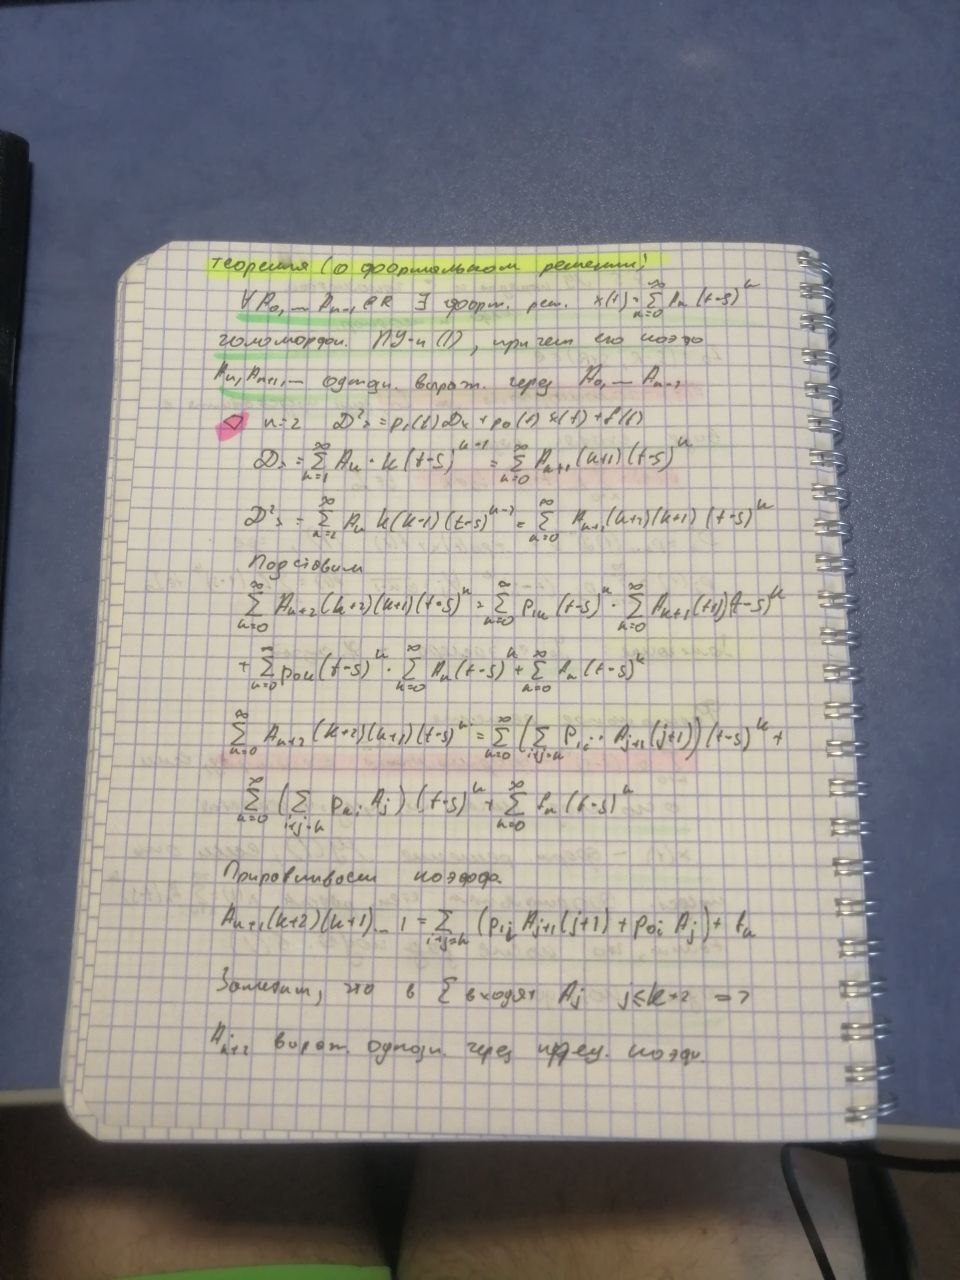 Теорема (о формальном решении)
∀ A₀, ... Aₙ₋₁ ∈ R ∃ форм. реш. x(t) = ∑_{k=0}^∞ Aₖ (t-s)^k
голоморфн. ЛУ-n (1), причем его коэфф
Aₙ, Aₙ₊₁, ... однозн. выраж. через A₀, ... Aₙ₋₁
n=2 D²x = p₁(t)Dx + p₀(t)x(t) + f(t)
Dx = ∑_{k=1}^∞ Aₖ · k (t-s)^{k-1} = ∑_{k=0}^∞ Aₖ₊₁ (k+1) (t-s)^k
D²x = ∑_{k=2}^∞ Aₖ k(k-1) (t-s)^{k-2} = ∑_{k=0}^∞ Aₖ₊₂ (k+2)(k+1) (t-s)^k
Подставим
∑_{k=0}^∞ Aₖ₊₂ (k+2)(k+1)(t-s)^k = ∑_{k=0}^∞ p₁ₖ (t-s)^k · ∑_{k=0}^∞ Aₖ₊₁ (k+1)(t-s)^k
+ ∑_{k=0}^∞ p₀ₖ (t-s)^k · ∑_{k=0}^∞ Aₖ (t-s)^k + ∑_{k=0}^∞ fₖ (t-s)^k
∑_{k=0}^∞ Aₖ₊₂ (k+2)(k+1)(t-s)^k = ∑_{k=0}^∞ (∑_{i+j=k} p₁ᵢ · Aⱼ₊₁ (j+1)) (t-s)^k +
∑_{k=0}^∞ (∑_{i+j=k} p₀ᵢ Aⱼ) (t-s)^k + ∑_{k=0}^∞ fₖ (t-s)^k
Приравниваем коэффф.
Aₖ₊₂ (k+2)(k+1) ... 1 = ∑_{i+j=k} (p₁ⱼ Aⱼ₊₁ (j+1) + p₀ᵢ Aⱼ) + fₖ
Заметим, что в ∑ входят Aⱼ j≤k+2 =>
Aₖ₊₂ выраж. однозн. через пред. коэфф.